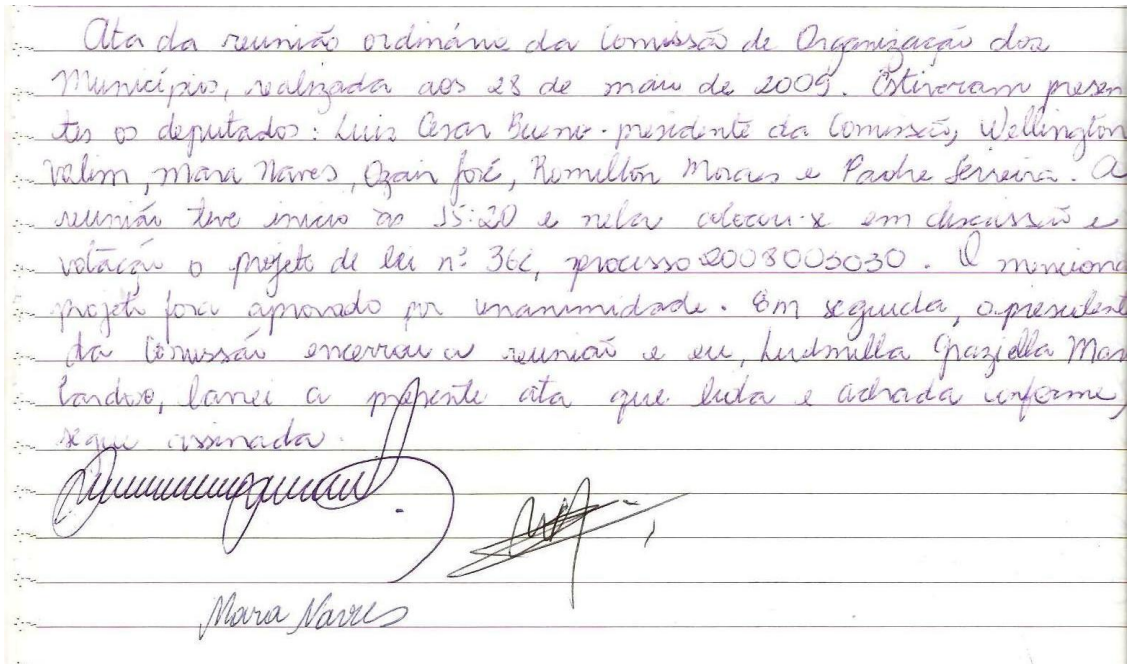 Ata da reunião ordinária da Comissão de Organização dos
Municípios, realizada aos 28 de maio de 2009. Estiveram presen
tes os deputados: Luis Cesar Bueno - presidente da Comissão, Wellington
Valim, Mara Naves, Ozair José, Romilton Moraes e Padre Ferreira. A
reunião teve início às 15:20 e nela colocou-se em discussão e
votação o projeto de lei nº processo 2008003030. O menciona
projeto fora aprovado por unanimidade. Em seguida, o president
da Comissão encerrou a reunião e eu, Ludmilla Graziella Mar
Cardoso, lavrei a presente ata que lida e achada conforme,
segue assinada.
Mara Naves